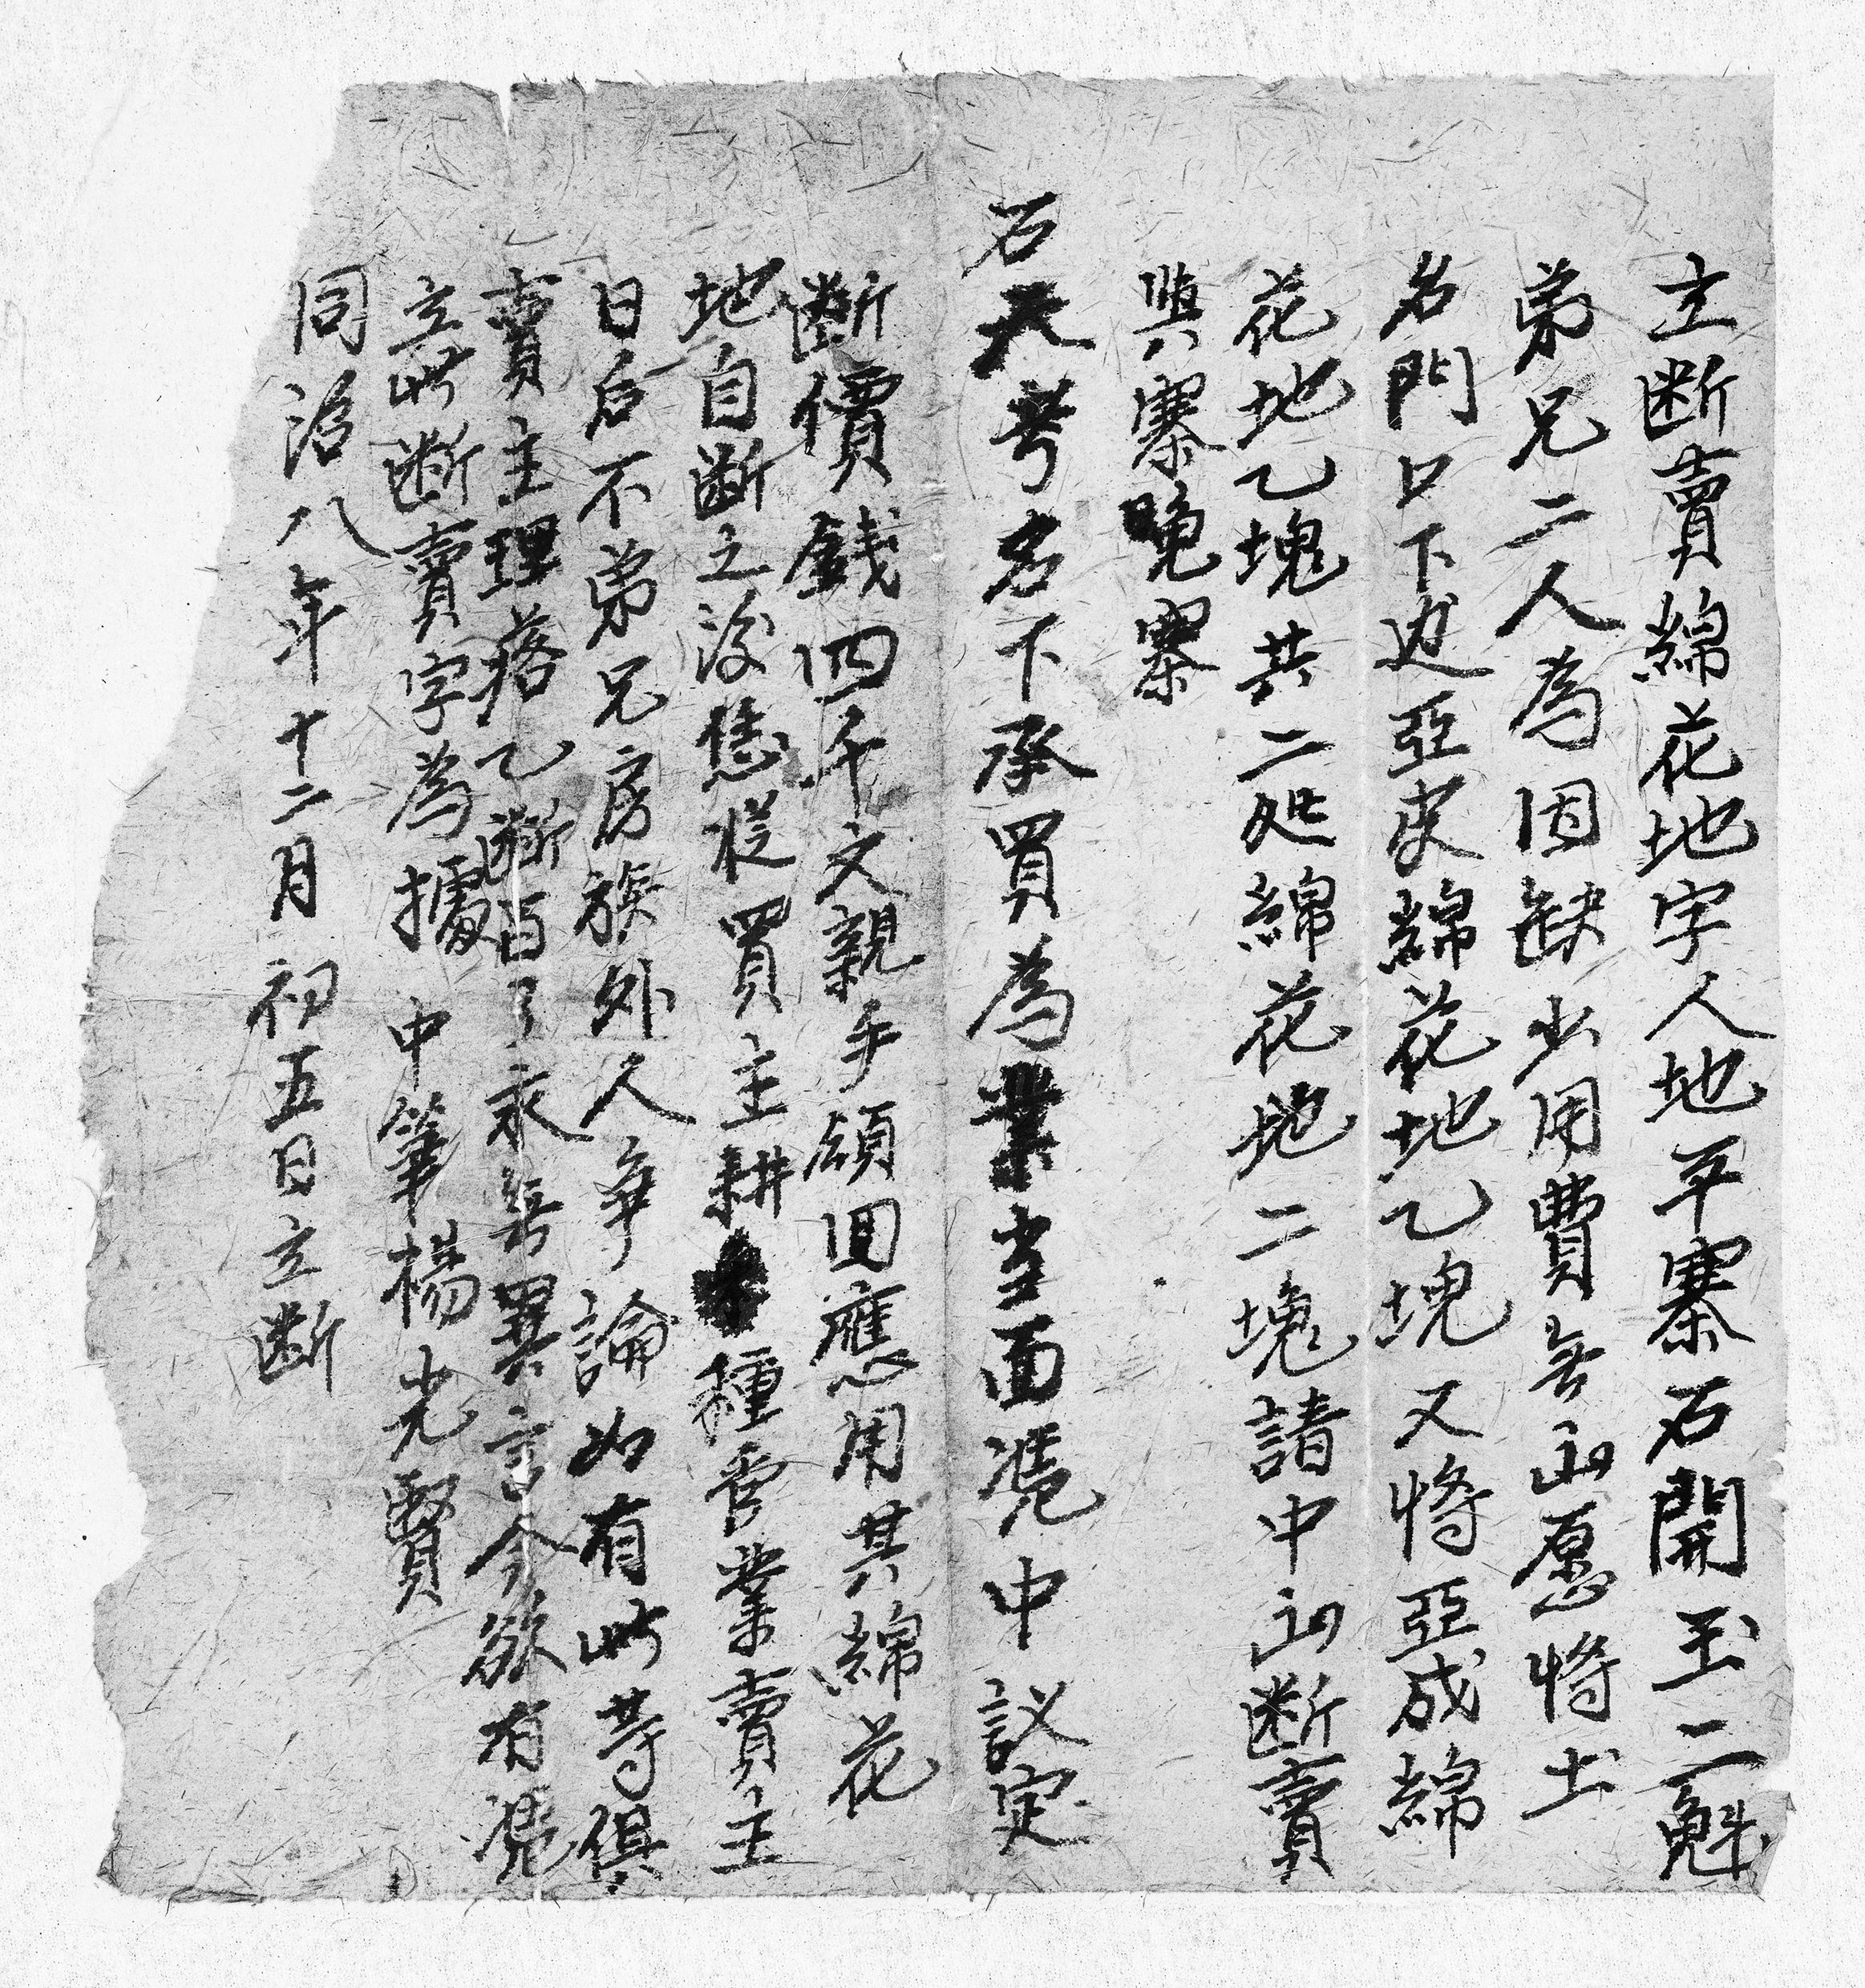 立断賣綿花地字人地平寨石開玉二魁
弟兄二人為因缺少用費無出愿将土
名門口下边亞束綿花地乙塊又将亞成綿
花地乙塊共二処綿花地二塊請中出断賣
與寨晚寨
石天考名下承買為業当面凴中議定
断價錢四千文親手領回應用其綿花
地自断之後慿從買主耕種管業賣主
日后不弟兄房族外人争論如有此等俱
賣主理落乙断百了永無異言今欲有凴
立此断賣字為據 中筆楊光賢
同治八年十二月初五日立断